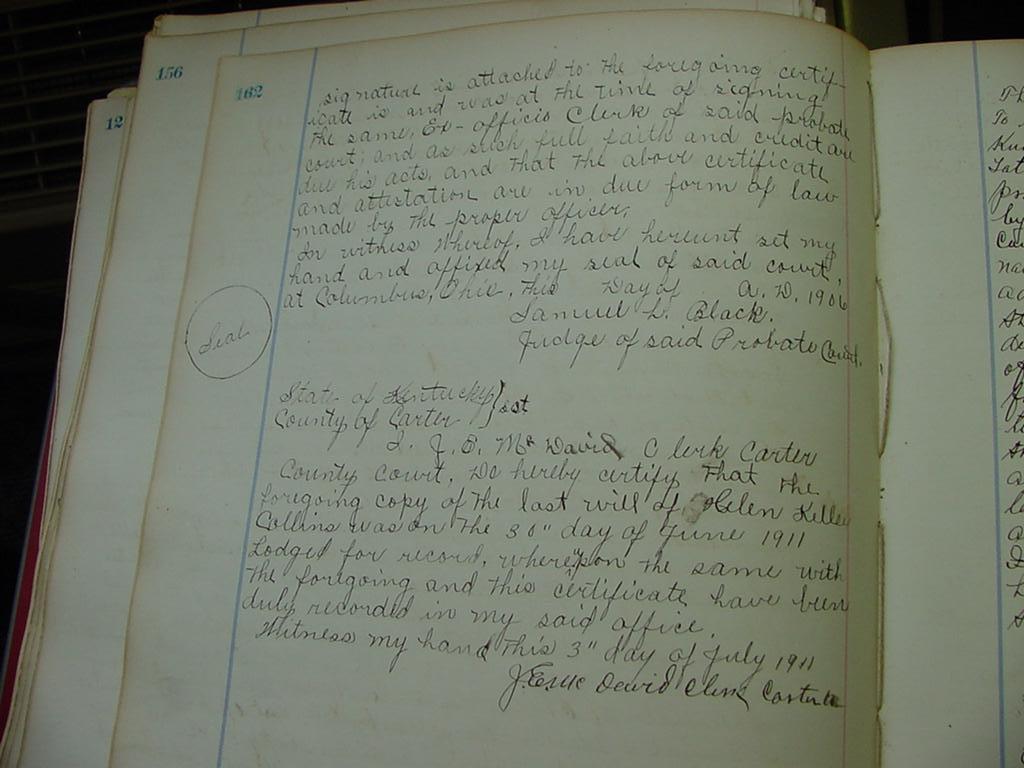 156
12
162
signature is attached to the foregoing certif-
icate is and was at the time of signing
the same, Ex-officio Clerk of said probate
court; and as such full faith and credit are
due his acts, and that the above certificate
and attestation are in due form of law
made by the proper officer.
In witness Whereof, I have hereunt set my
hand and affixed my seal of said court,
at Columbus, Ohio, this Day of A. D. 1906
Samuel L. Black.
Judge of said Probate Court.
Seal
State of Kentucky
County of Carter } sct
I. J. E. Mc David Clerk Carter
County Court, Do hereby certify that the
foregoing copy of the last will of Helen Kelley
Collins was on the 30" day of June 1911
Lodged for record, whereupon the same with
the foregoing and this certificate have been
duly recorded in my said office.
Witness my hand this 3" day of July 1911
David Clerk Carter